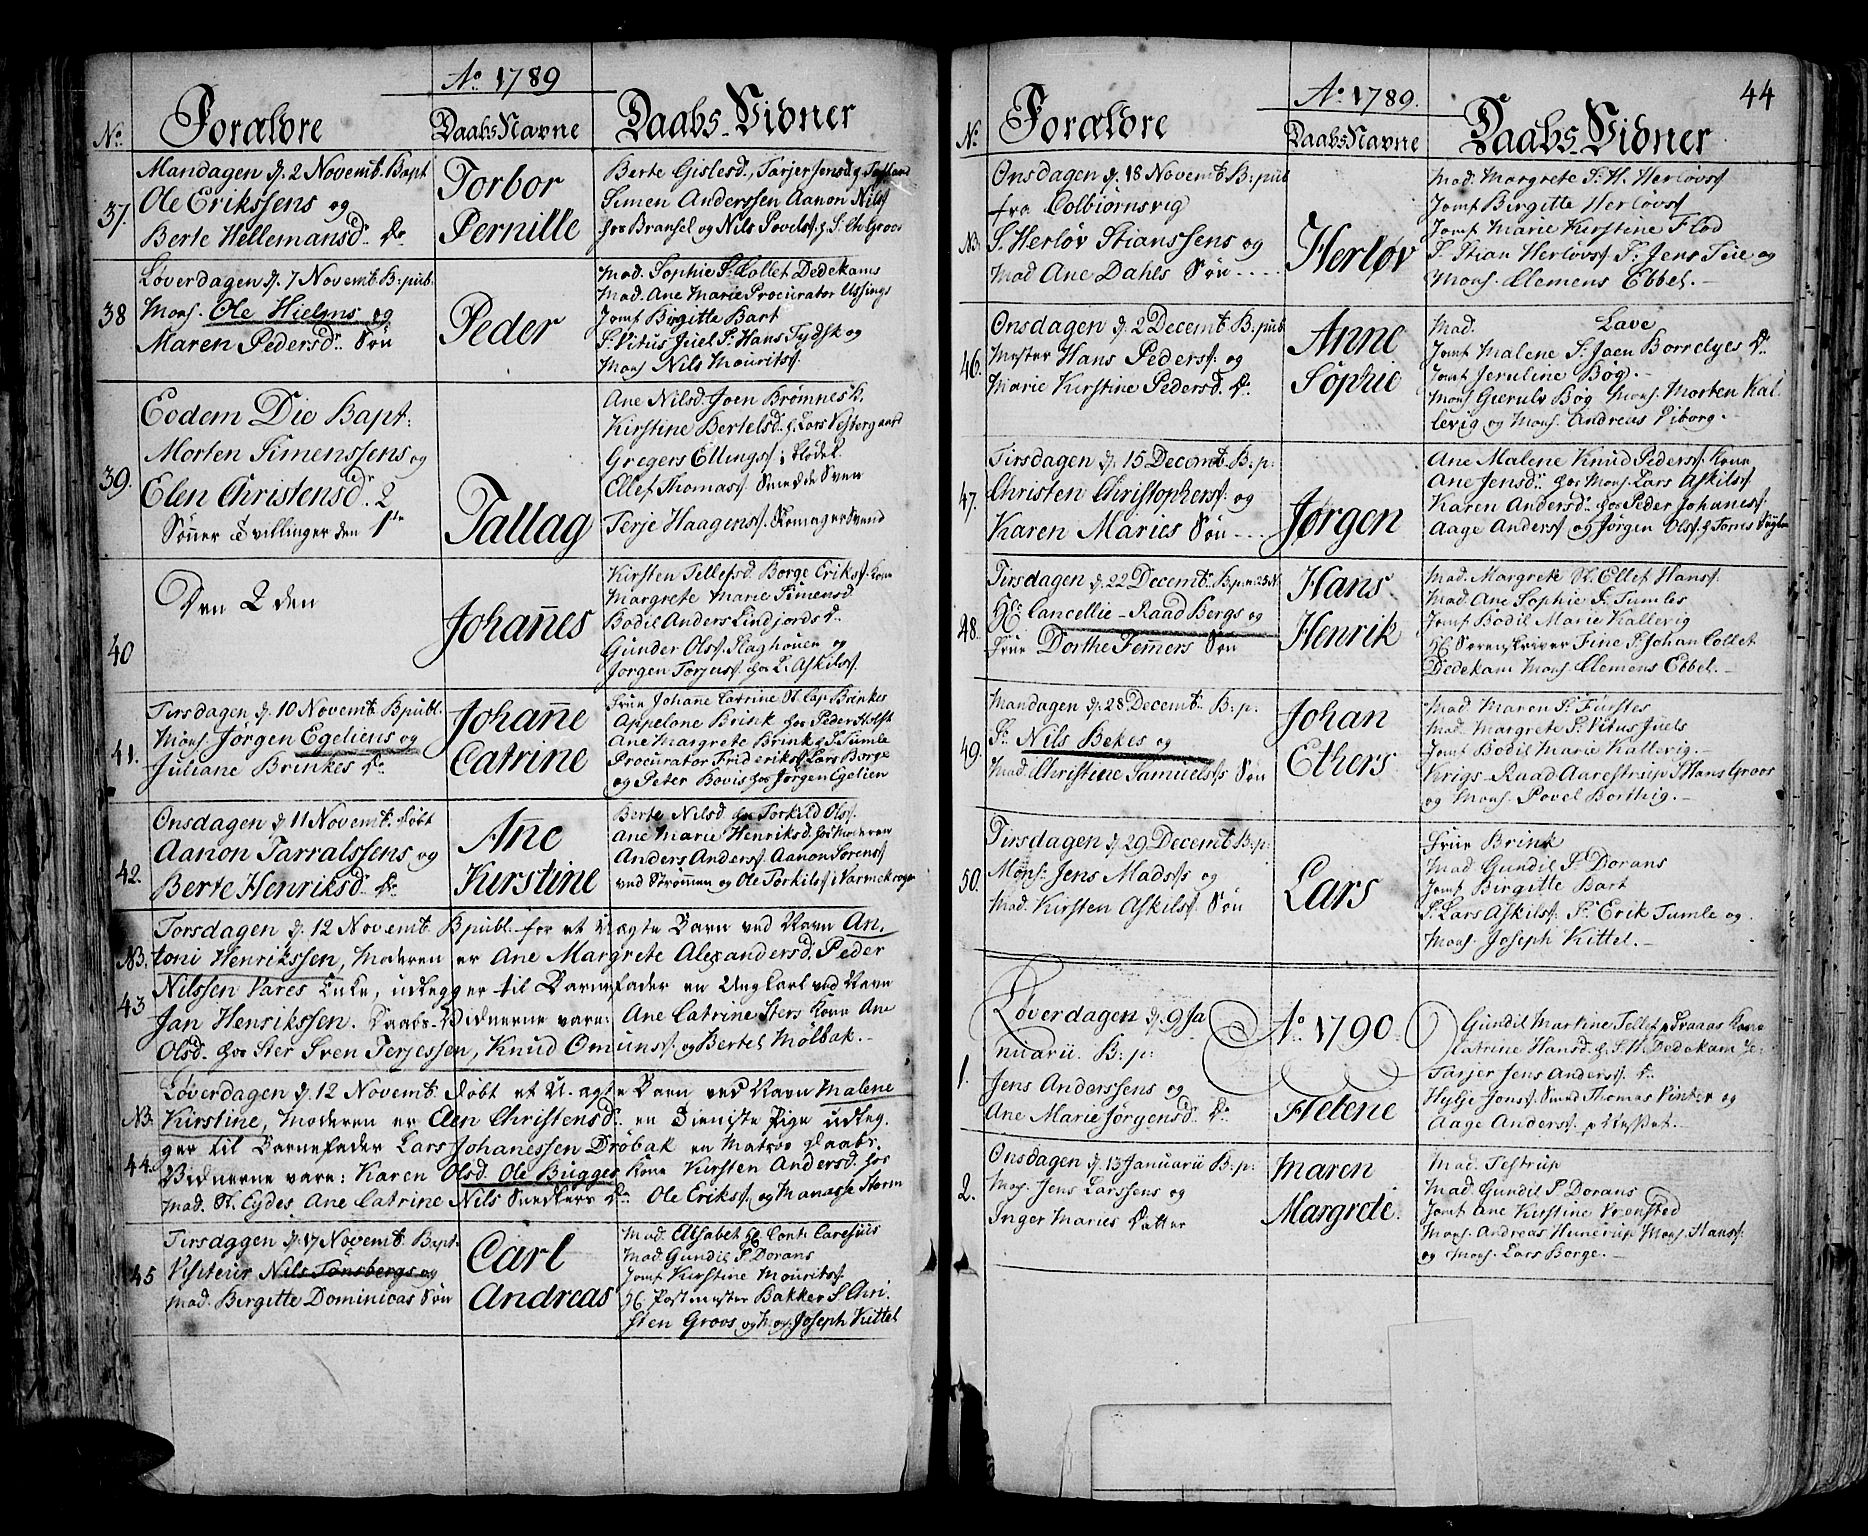 Ao 1789
No. Forældre DaabsNavne Daabs-Vidner
37.
Mandagen d. 2 Novembt. Bapt
Ole Erikssens og
Berte Hellemansd. Dr.
Torbor
Pernille
Berte Gislesd., Tarjer Jensd.
Simen Anderssen Aanon Nilss
hos Bransel og Nils Povelss. S. Ch Groos
38
Løverdagen d. 7 Novembt. B: pub.
Mons. Ole Hielms og
Maren Pedersd. Søn
Peder
Mad. Sophie Sr. Collet Dedekams
Mad. Ane Marie Procurator Ussings
Jomf Birgitte Bart
Sr. Vitus Juel Sr. Hans Tydsk og
Mons Nils Mouritss.
39.
Eodem Die Bapt:
Morten Simenssens og
Elen Christensd. 2
Sønner Tvillinger den 1ste
Tallag
Ane Nilsd. Joen Brømnes K.
Kirstine Bertelsd. h. Lars Vestergaard
Gregers Ellingss i Rødel
Ellef Thomass. Smedde Sven
Terje Haagenss. Skomager Svend
40
Den 2 den
Johannes
Kirsten Tellefsd. Borge Erikss. Kone
Margrete Marie Simensd
Bodil Anders Lindjords Dr.
Gunder Olss. Slaghouen og
Jørgen Torjuss. hos L. Askilss.
41.
Tirsdagen d. 10 Novembt. B publ.
Mons. Jørgen Egeliens og
Juliane Brinkes Dr
Johanne
Catrine
Frue Johane Catrine St. Cap. Brinkes
Appelone Brink hos Peder Holst
Ane Margrete Brink h. S. Tumle
Procurator Frideriks Lars Borge
og Peter Bovis hos Jørgen Egelien
42.
Onsdagen d. 11 Novembt. døbt
Aanon Tarralssens og
Berte Henriksd. Dr
Ane
Kirstine
Berte Nilsd. hos Torkild Olss.
Ane Marie Henriksd. hos Moderen
Anders Anderss. Aanon Sørenss
ved Strømmen og Ole Torkilss i Varmekroger
NB. 43
Torsdagen d. 12 Novembt. B publ. for et Uægte Barn ved Navn An,
toni Henrikssen, Moderen er Ane Margrete Alexandersd. Peder
Nilssen Vares Enke, udlegger til Barnefader en Ung Carl ved Navn
Jan Henrikssen. Daabs-Vidnerne vare: Ane Catrine Sters Kone Ane
Olsd. hos Ster Sven Terjessen, Knud Omunss. og Bertel Mølbak. -
NB. 44.
Løverdagen d. 12 Novembt. døbt et U. ægte Barn ved Navn Malene
Kirstine, Moderen er Elen Christensd. en Tieniste Pige udleg,
ger til Barnefader Lars Johanessen Drøbak en Matros Daabs.
Vidnerne vare: Karen Olsd. Ole Bugges Kone Kirsten Andersd. hos
Mad. St. Eydes, Ane Catrine Nils Snedkers Dr. Ole Erikss. og Manasse Storm
45
Tirsdagen d. 17 Novembt. Bapt.
Visiteur Nils Tønsbergs og
Mad. Birgitte Dominicas Søn
Carl
Andreas
Mad. Elisabet H. Cont. Caresius
Mad. Gundil S Dorans
Jomf Kirstine Mouritss.
H. Postmester Bakker S. Chri,
sten Groos og Mons. Joseph Kittel
44
Ao. 1789.
No. Forældre DaabsNavne Daabs-Vidner
NB.
Onsdagen d. 18 Novembt. B: pub
fra Colbiornsvig
S. Herløv Stianssens og
Mad Ane Dahls Søn ....
Herløv
Mad. Margrete S. H. Herløvss
Jomf Birgitte Herløvss
Jomf Marie Kirstine Flod
S. Stian Herløvss. Sr. Jens Tue og
Mons. Clemens Ebbel. -
46.
Onsdagen d. 2 Decembt. B: pub
Mester Hans Pederss. og
Marie Kirstine Pedersd. Dr.
Anne
Sophie
Mad. Lave
Jomf Malene S. Jaen Borrelyes Dr.
Jomf Jeruline Bog. -
Mons Gierulv Bog Mons. Morten Kal-
levig og Mons. Andreas Viborg. -
47.
Tirsdagen d. 15 Decembt. B: p:
Christen Christopherss. og
Karen Maries Søn ...
Jørgen
Ane Malene Knud Pederss. Kone
Ane Jensd. hos Mons. Lars Askilss.
Karen Andersd. hos Peder Johaness.
Aage Anderss og Jørgen Olss.
48.
Tirsdagen d. 22 Decembt. B: p.
H. Cancellie-Raad Bergs og
Frue Dorthe Femmers Søn
Hans.
Henrik
Mad. Margrete St. Ellef Hanss.
Mad. Ane Sophie S. Tumles
Jomf Bodil Marie Kallevig
H. Sorenskriver Fine S. Johan Collet
Dedekam Mons. Clemens Ebbel. -
49.
Mandagen d. 28 Decembt. B: p.
Sr. Nils Bekes og
Mad. Christine Samuelss Søn
Johan
Ethers
Mad Maren S. Fürstes
Mad. Margrete S. Vitus Juels
Jomf Bodil Marie Kallevig. -
Krigs-Raad Aarestrup S. Hans Groos
og Mons. Povel Borthig. -
50.
Tirsdagen d. 29 Decembt B: p:
Mons: Jens Madss og
Mad. Kirsten Askilss. Søn
Lars
Frue Brink
Mad Gundil S Dorans
Jomf Birgitte Bart
S. Lars Askilss. Sr. Erik Tumle og
Mons. Joseph Kittel. -
Ao. 1790.
1.
Løverdagen d. 9 Ja
nuarii. B: p:
Jens Anderssens og
Ane Marie Jørgensd. Dr
Helene
Gundil Martine Tellef Praaas Kone
Catrine Hansd. h. S. H. Dedekam Je-
Tarjer Jens Anderss. Dr
Hylje Jonss. Svend Thomas Vinter og
Aage Anderss.
2.
Onsdagen d. 13 Januarii B: p:
Mons. Jens Larssens og
Inger Maries Datter
Maren
Margrete.
Mad. Testrup
Mad. Gundil S Dorans
Jomf Ane Kirstine Vrensted
Mons. Andreas Hunerup Mons. Hanss.
og Mons. Lars Borge. -